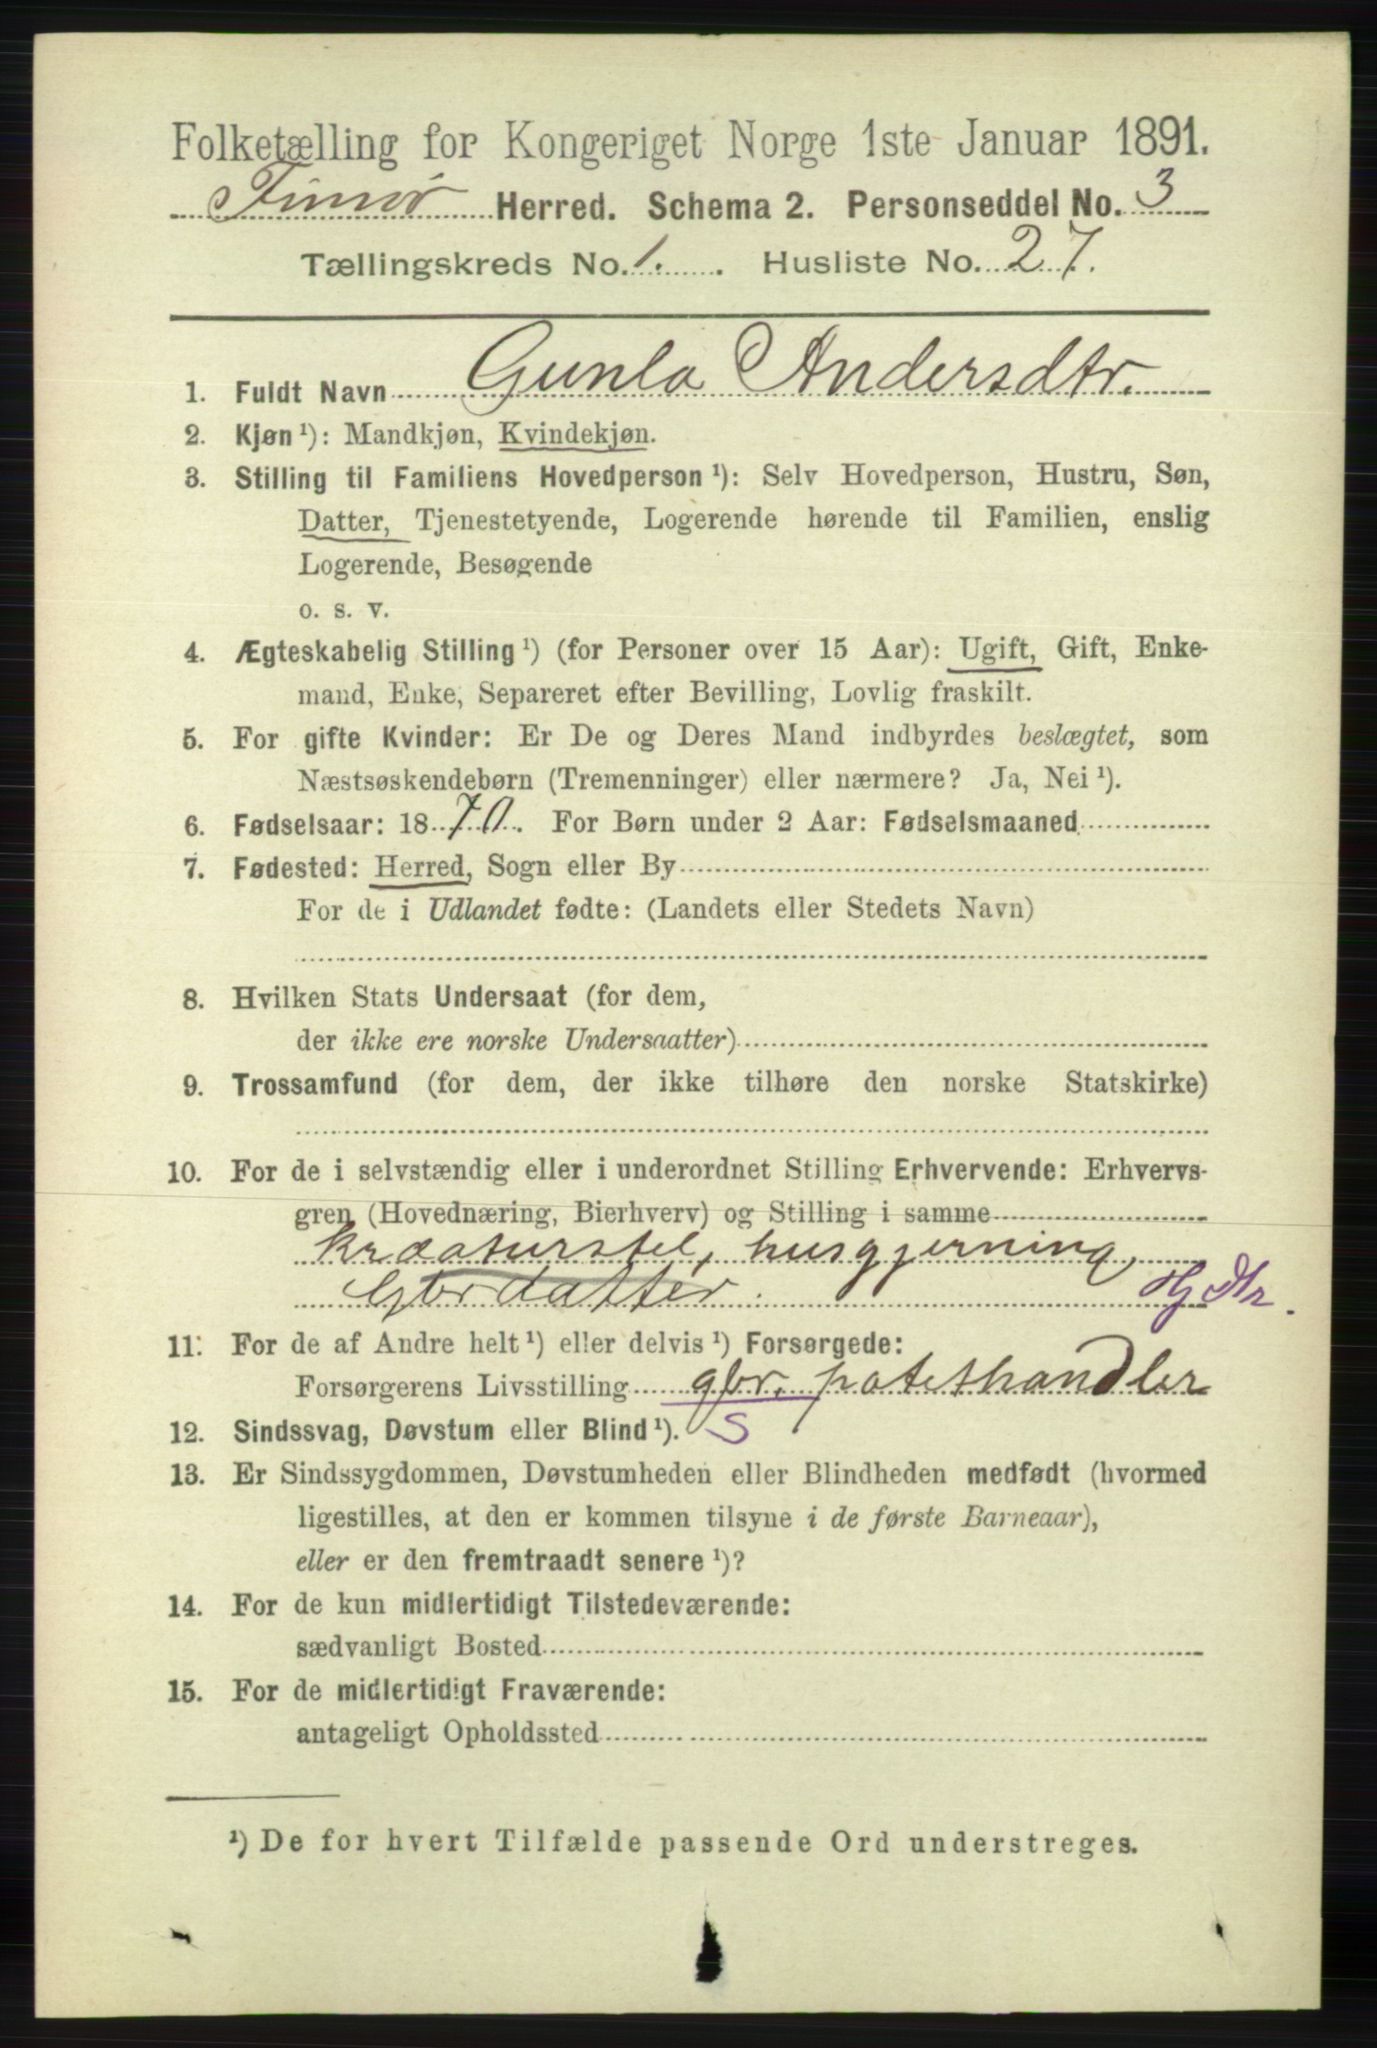 Folketælling for Kongeriget Norge 1ste Januar 1891.
Finnø Herred. Schema 2. Personseddel No. 3
Tællingskreds No. 1. Husliste No. 27.
1. Fuldt Navn Gunla Andersdtr.
2. Kjøn ¹): Mandkjøn, Kvindekjøn.
3. Stilling til Familiens Hovedperson ¹): Selv Hovedperson, Hustru, Søn,
Datter, Tjenestetyende, Logerende hørende til Familien, enslig
Logerende, Besøgende
o. s. v.
4. Ægteskabelig Stilling ¹) (for Personer over 15 Aar): Ugift, Gift, Enke-
mand, Enke, Separeret efter Bevilling, Lovlig fraskilt.
5. For gifte Kvinder: Er De og Deres Mand indbyrdes beslægtet, som
Næstsøskendebørn (Tremenninger) eller nærmere? Ja, Nei ¹).
6. Fødselsaar: 1870. For Børn under 2 Aar: Fødselsmaaned
7. Fødested: Herred, Sogn eller By
For de i Udlandet fødte: (Landets eller Stedets Navn)
8. Hvilken Stats Undersaat (for dem,
der ikke ere norske Undersaatter)
9. Trossamfund (for dem, der ikke tilhøre den norske Statskirke)
10. For de i selvstændig eller i underordnet Stilling Erhvervende: Erhvervs-
gren (Hovednæring, Bierhverv) og Stilling i samme
kræaturstel, husgjerning
Gbrdatter. Hj Dtr.
11. For de af Andre helt ¹) eller delvis ¹) Forsørgede:
Forsørgerens Livsstilling gbr. potethandler
12. Sindssvag, Døvstum eller Blind ¹). S
13. Er Sindssygdommen, Døvstumheden eller Blindheden medfødt (hvormed
ligestilles, at den er kommen tilsyne i de første Barneaar),
eller er den fremtraadt senere ¹)?
14. For de kun midlertidigt Tilstedeværende:
sædvanligt Bosted
15. For de midlertidigt Fraværende:
antageligt Opholdssted
¹) De for hvert Tilfælde passende Ord understreges.